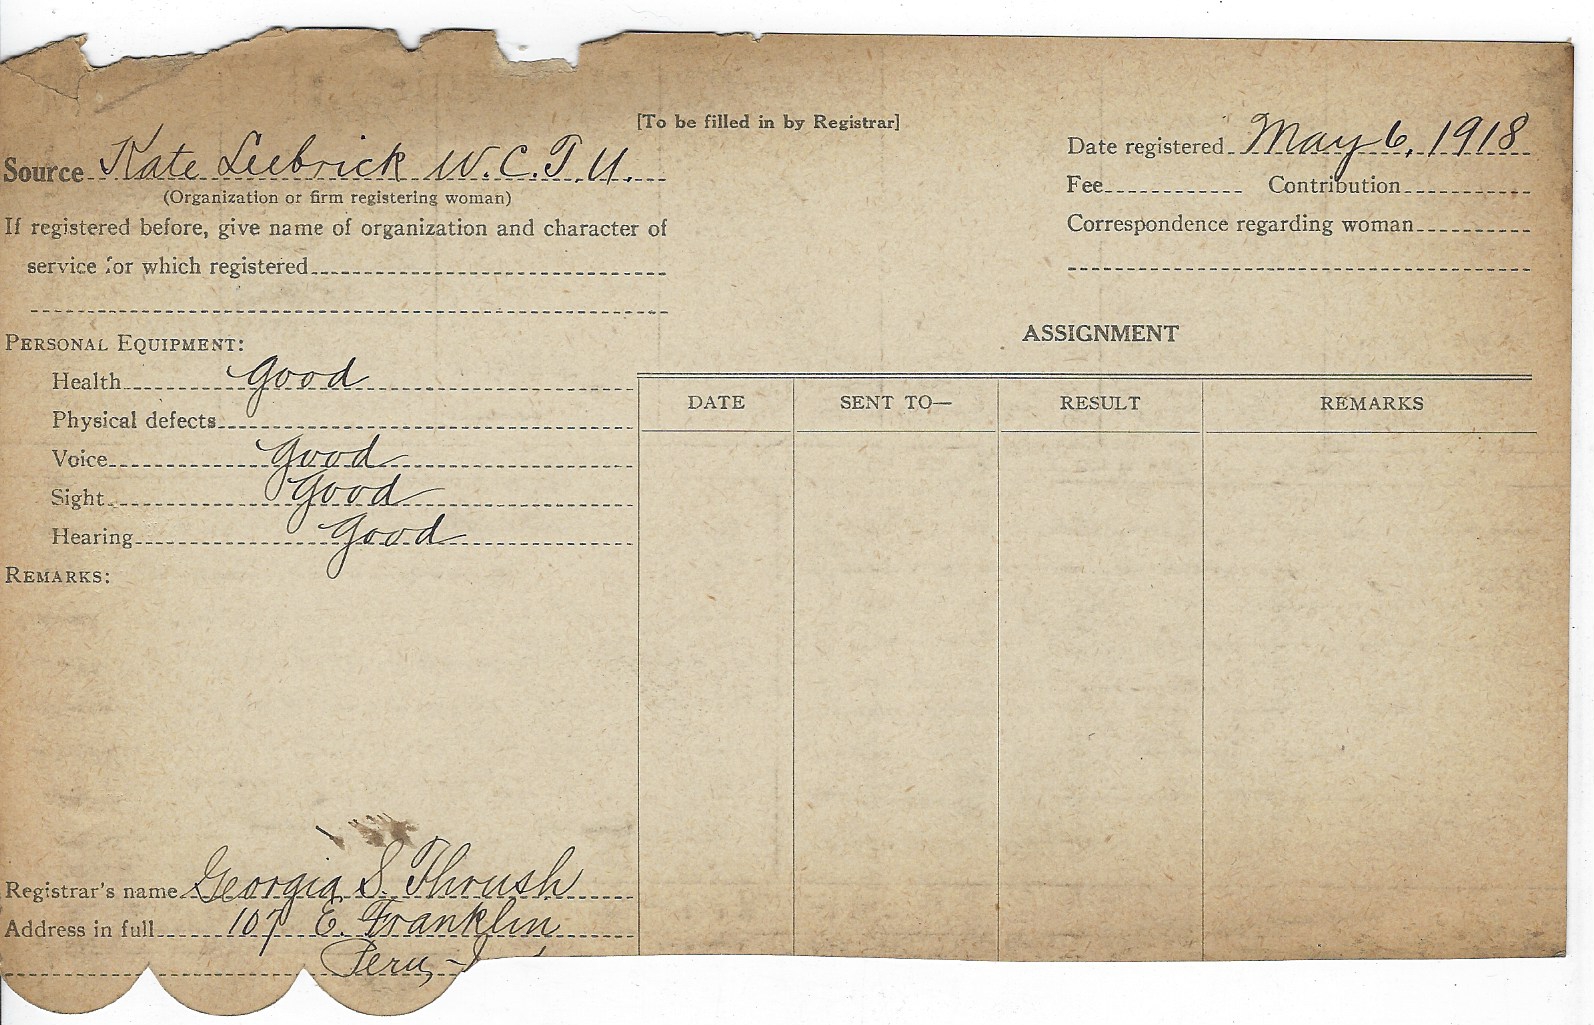 [To be filled in by Registrar]
Source Kate Leebrick W.C.T.U.
(Organization or firm registering woman)
If registered before, give name of organization and character of
service for which registered
Date registered May 6, 1918
Fee Contribution
Correspondence regarding woman
PERSONAL EQUIPMENT:
Health good
Physical defects
Voice good
Sight good
Hearing good
REMARKS:
ASSIGNMENT
DATE SENT TO— RESULT REMARKS
Registrar's name Georgia S. Thrush
Address in full 107 E. Franklin
Peru,